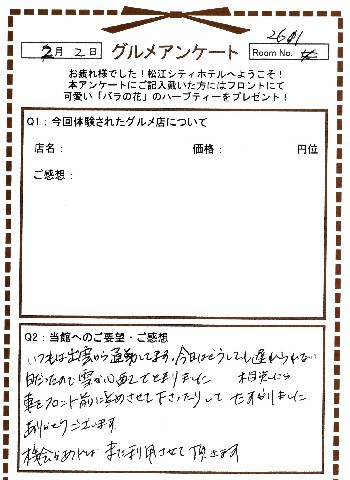 2月 2日 グルメアンケート Room No. 2601
お疲れ様でした！松江シティホテルへようこそ！
本アンケートにご記入戴いた方にはフロントにて
可愛い「バラの花」のハーブティーをプレゼント！
Q1：今回体験されたグルメ店について
店名： 価格： 円位
ご感想：
Q2：当館へのご要望・ご感想
いつもは出雲から通勤してます。今日はどうしても遅れられない
日だったので雪が心配でとまりました
車をフロント前に止めさせて下さったりして たすかりました
ありがとうございます
機会があれば また利用させて頂きます